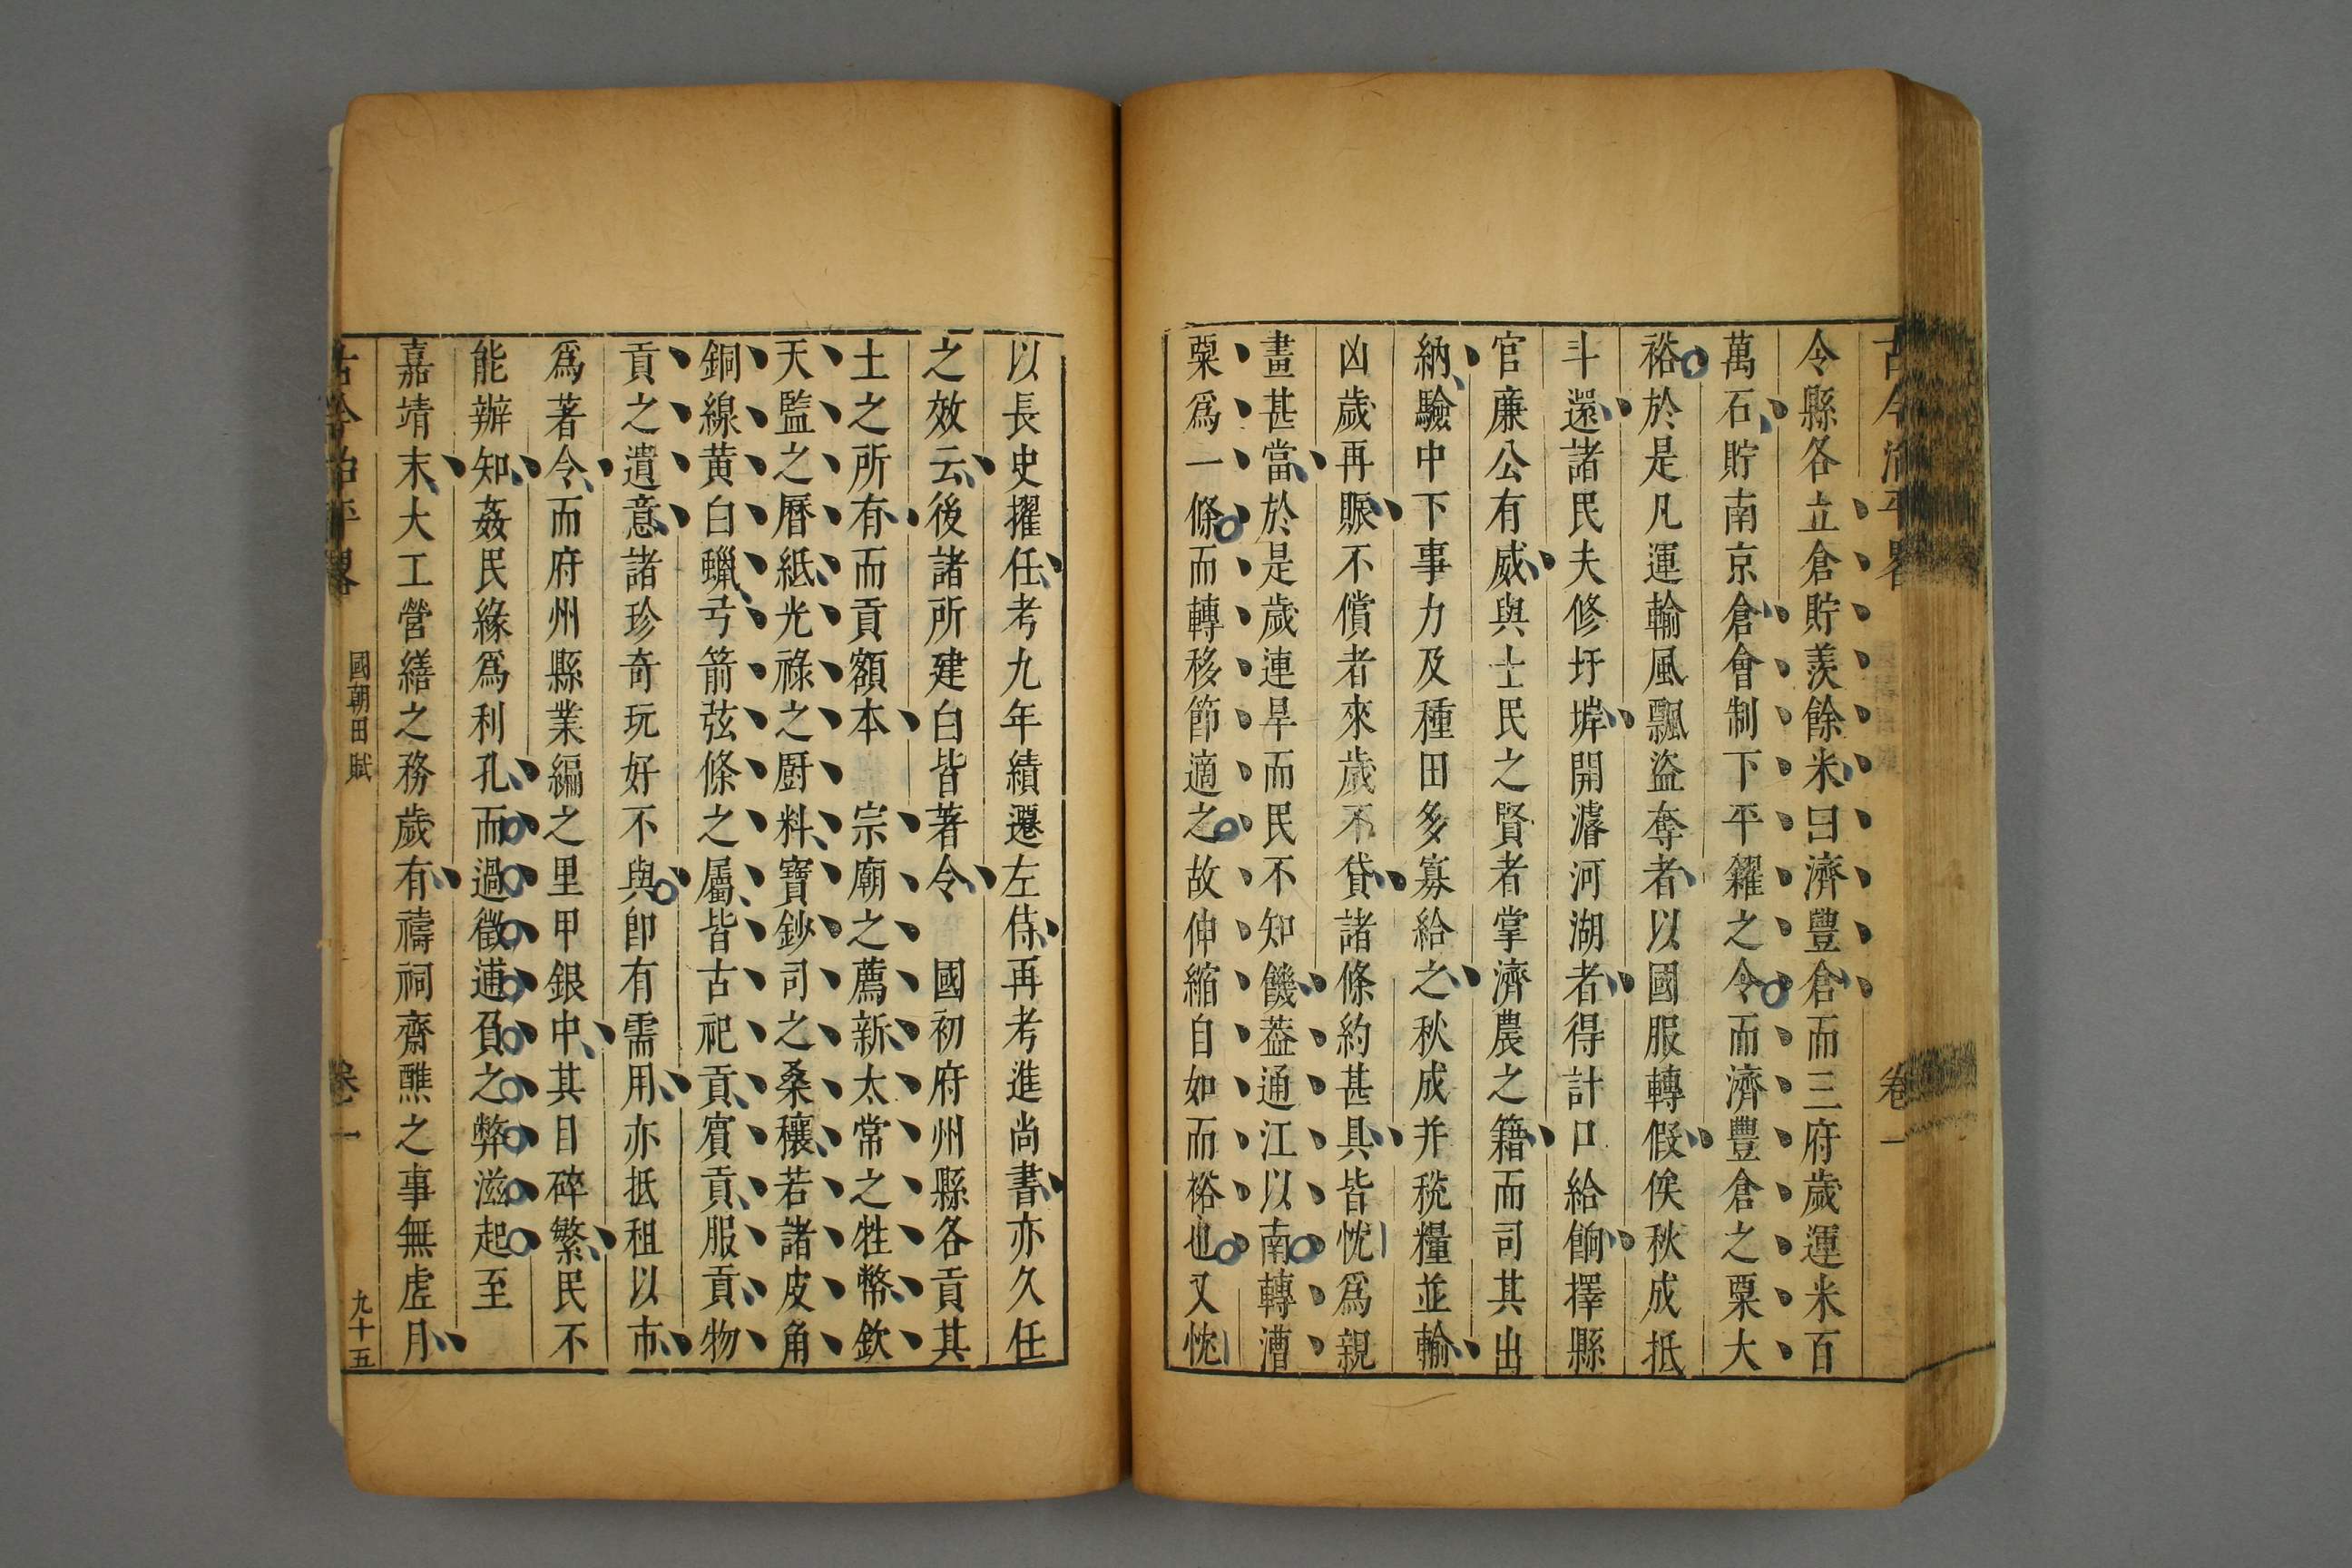 古今治平畧
卷一
令縣各立倉貯羨餘米曰濟豐倉而三府歲運米百
萬石貯南京倉會制下平糴之令而濟豐倉之粟大
裕於是凡運輸風飄盜奪者以國服轉假俟秋成抵
斗還諸民夫修圩塝開濬河湖者得計口給餉擇縣
官廉公有威與士民之賢者掌濟農之籍而司其出
納驗中下事力及種田多寡給之秋成并稅糧並輸
凶歲再賑不償者來歲不貸諸條約甚具皆忱爲親
畫甚當於是歲連旱而民不知饑葢通江以南轉漕
粟爲一條而轉移節適之故伸縮自如而裕也又忱
以長史擢任考九年績遷左侍再考進尚書亦久任
之效云後諸所建白皆著令 國初府州縣各貢其
土之所有而貢額本 宗廟之薦新太常之牲幣欽
天監之曆紙光祿之廚料寶鈔司之桑穰若諸皮角
銅線黄白蠟弓箭弦條之屬皆古祀貢賓貢服貢物
貢之遺意諸珍奇玩好不與卽有需用亦抵租以市
爲著令而府州縣業編之里甲銀中其目碎繁民不
能辦知姦民緣爲利孔而過徵逋負之弊滋起至
嘉靖末大工營繕之務歲有禱祠齋醮之事無虛月
古今治平畧
國朝田賦
卷一
九十五